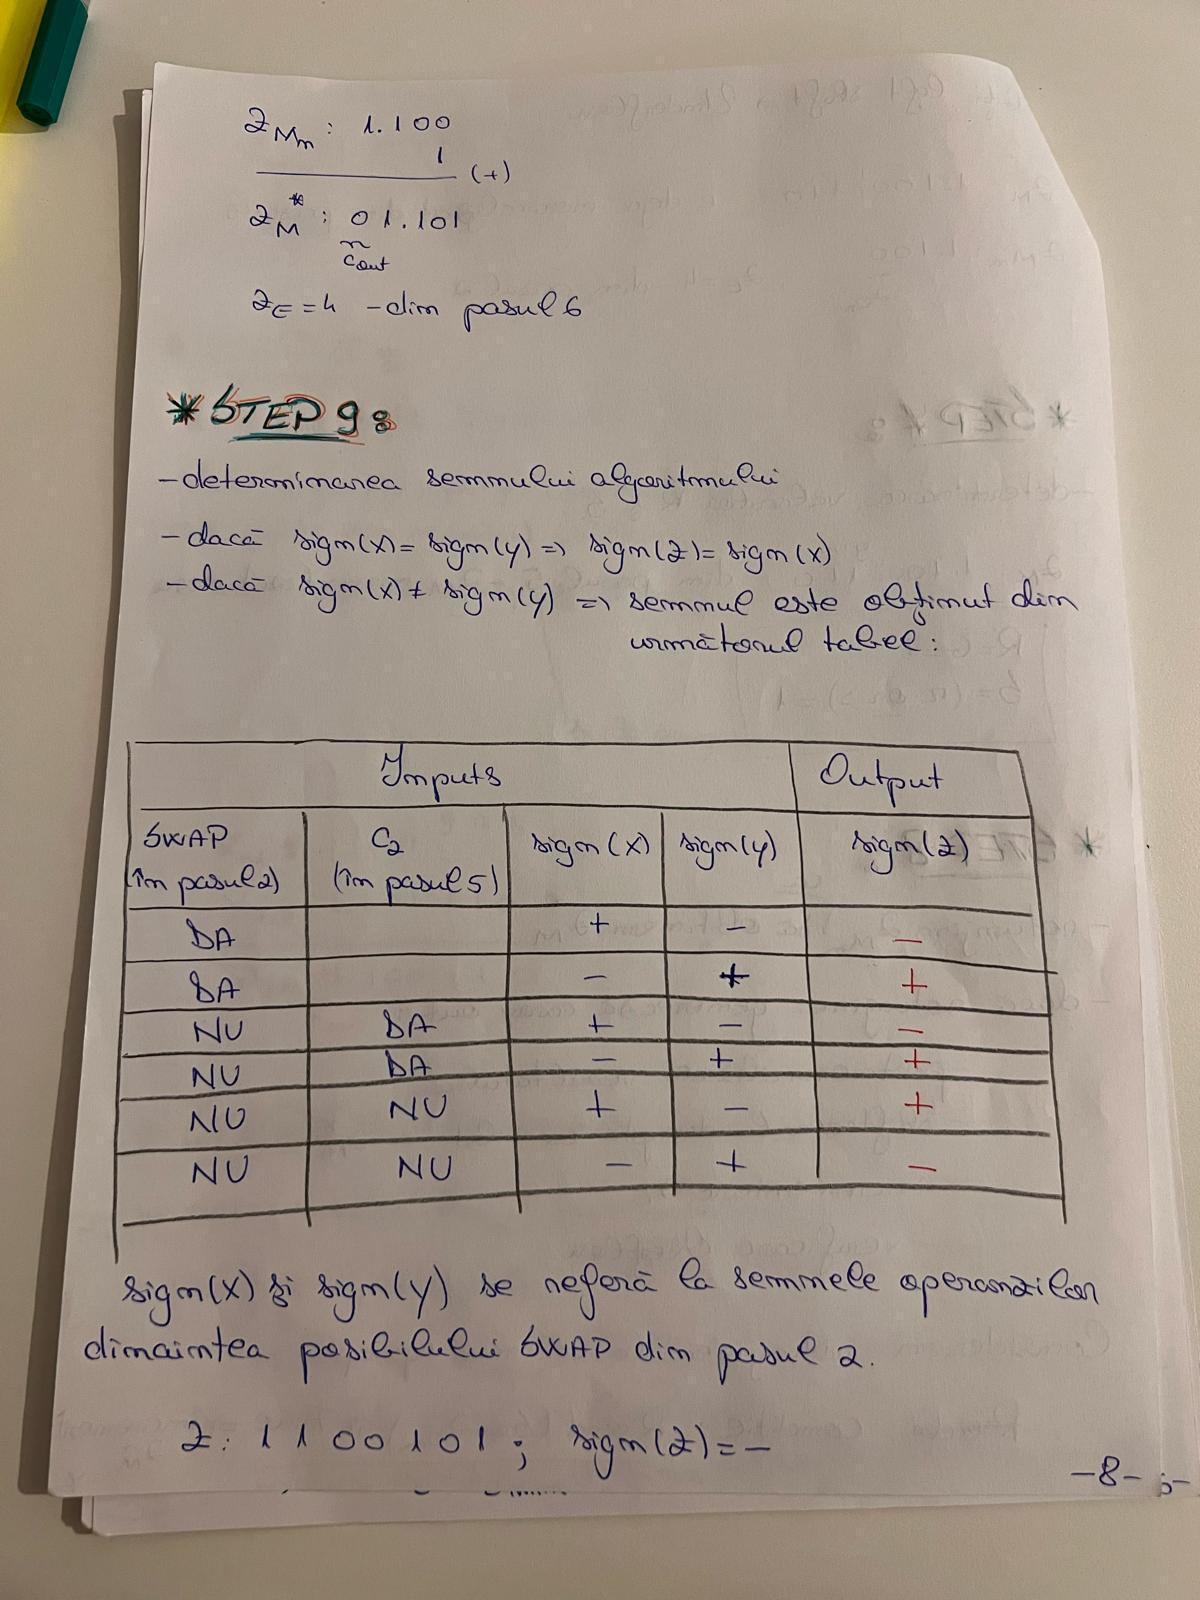 Z_Mn : 1.100
1
(+)
Z_M* : 01.101
Cout
Z_E = 4 - din pasul 6
* STEP 9:
- determinarea semnului algoritmului
- dacă sign(x) = sign(y) => sign(Z) = sign(x)
- dacă sign(x) ≠ sign(y) => semnul este obținut din
următorul tabel:
Inputs Output
SWAP C2 sign(x) sign(y) sign(Z)
(în pasul 2) (în pasul 5)
DA + - -
DA - + +
NU DA + - -
NU DA - + +
NU NU + - +
NU NU - + -
sign(x) și sign(y) se referă la semnele operanzilor
dinaintea posibilului SWAP din pasul 2.
Z: 1 1 00 101 ; sign(Z) = -
-8-